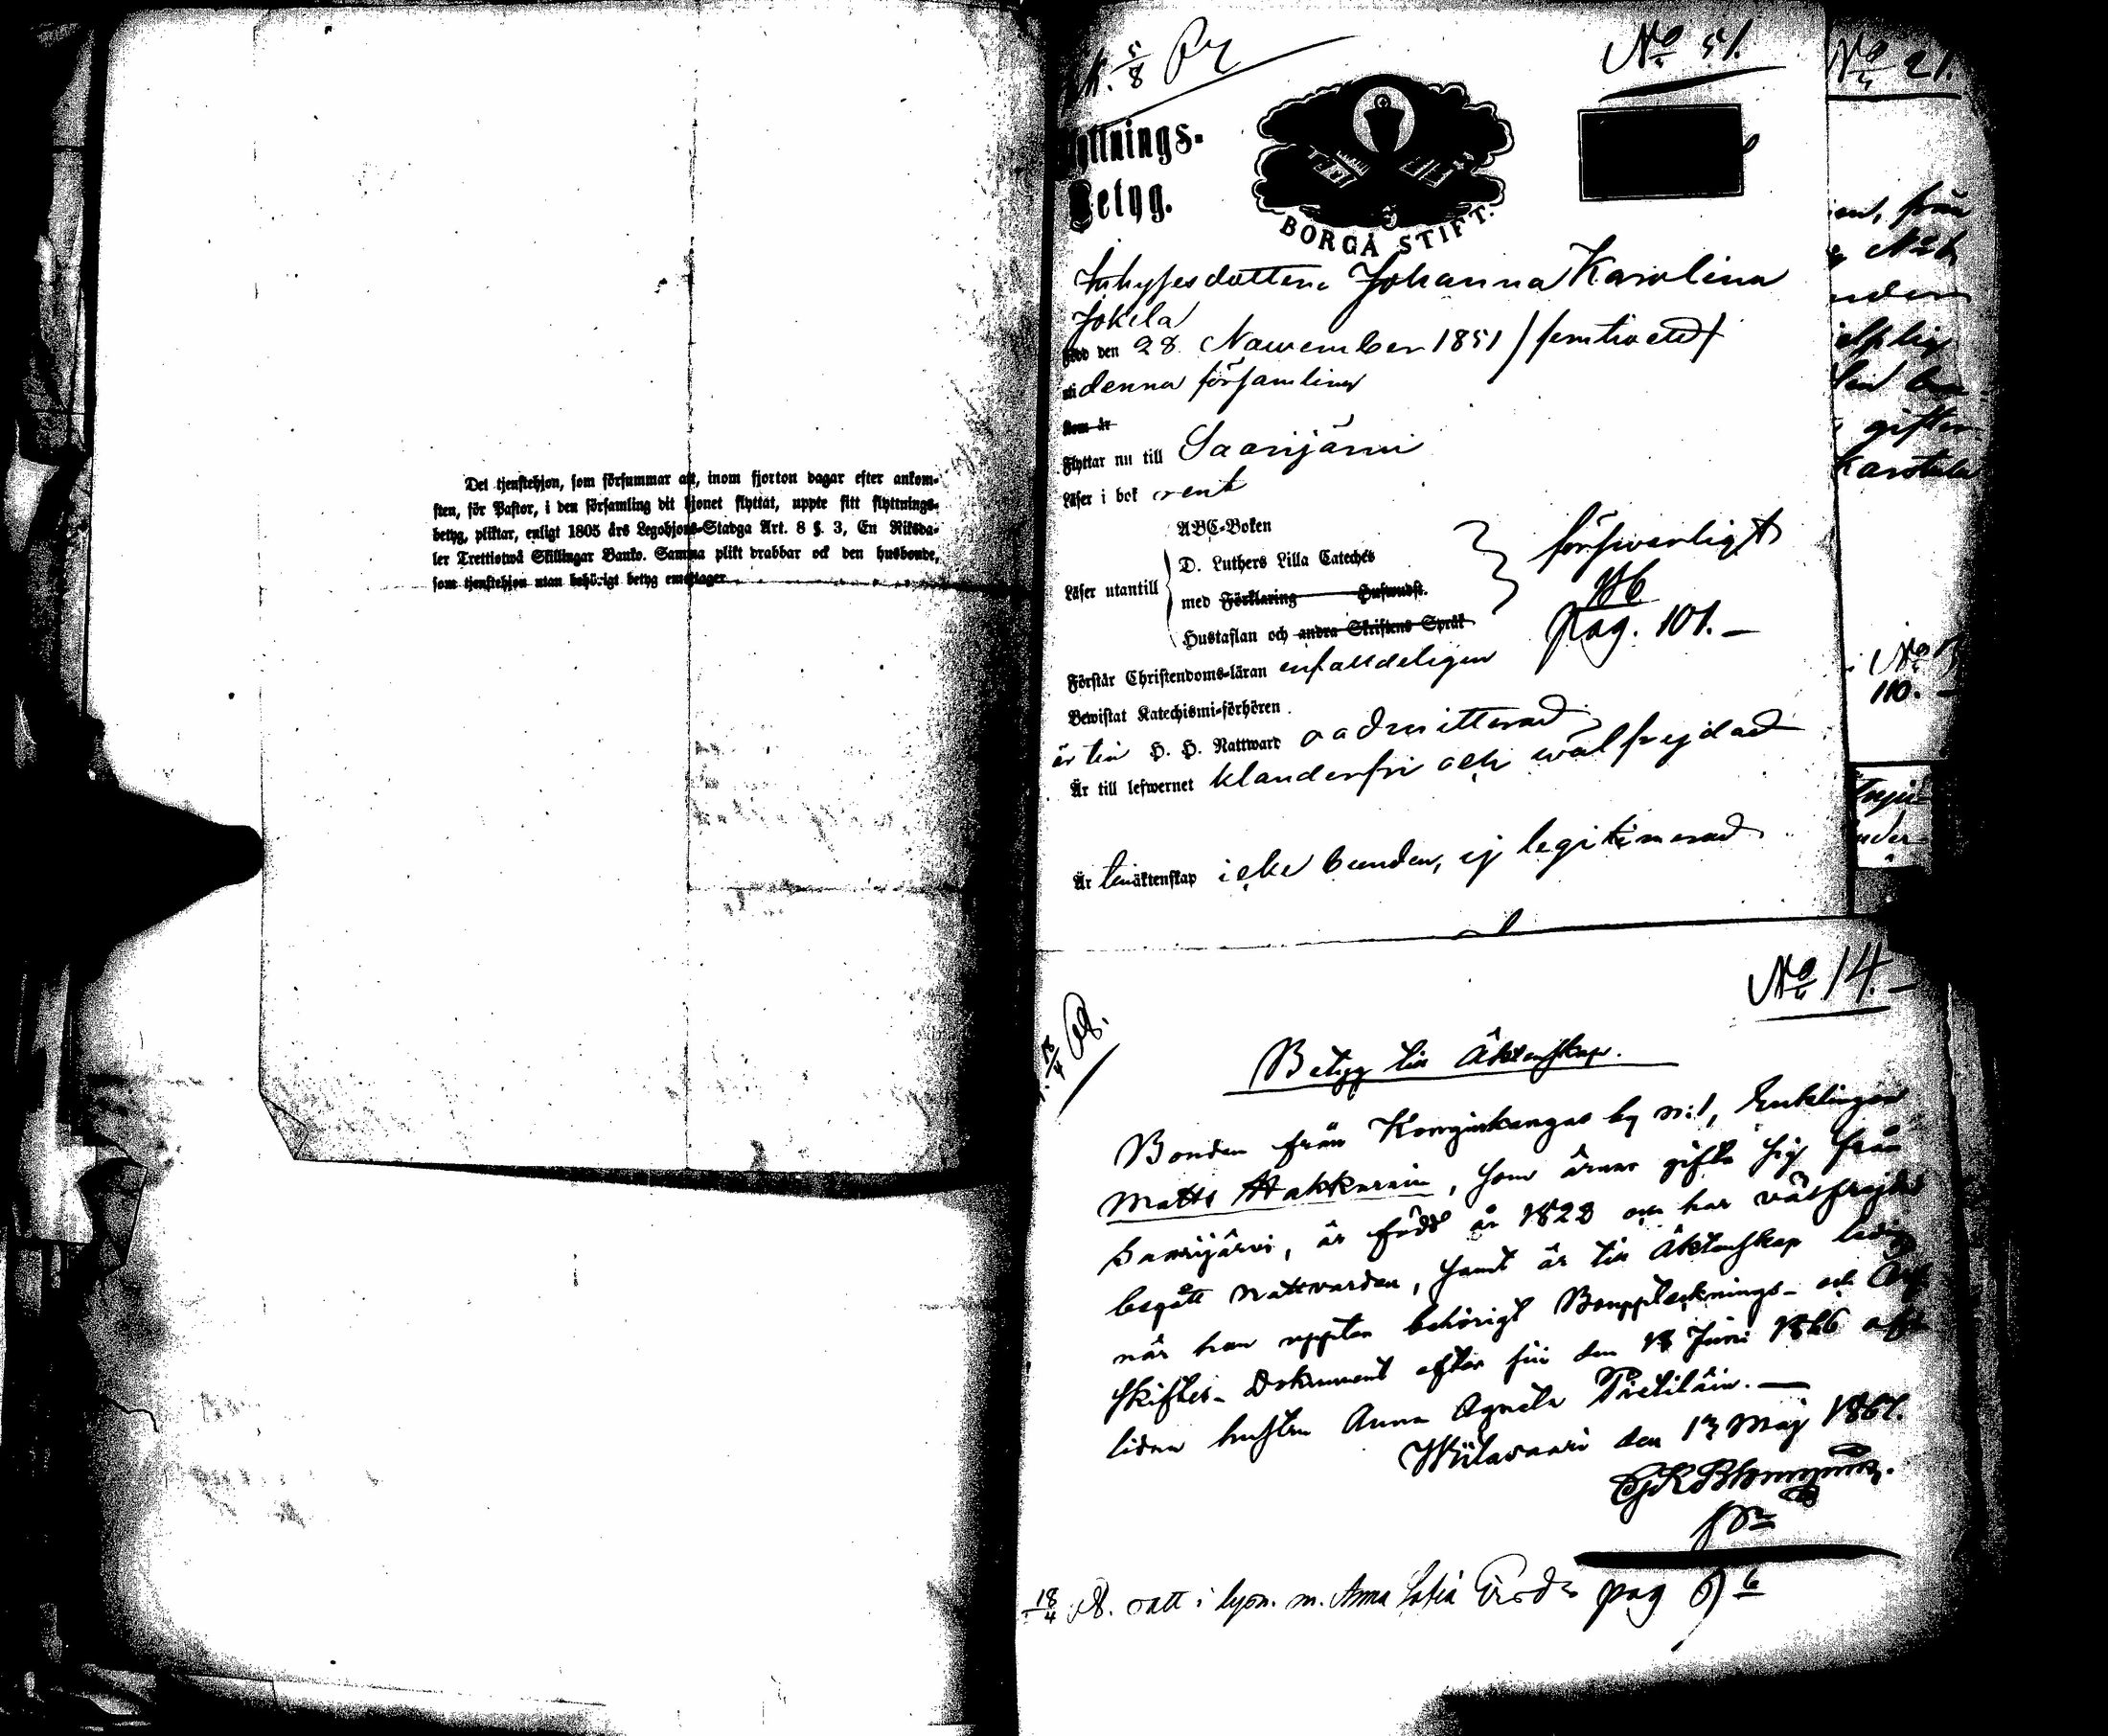 Det tjenstehjon, som försummar att, inom fjorton dagar efter ankom-
sten, för Pastor, i den församling dit hjonet flyttat, uppte sitt flyttnings-
betyg, pliktar, enligt 1805 års Legohjons-Stadga Art. 8 §. 3, En Riksda-
ler Trettiotwå Skillingar Banko. Samma plikt drabbar ock den husbonde,
som tjenstehjon utan behörigt betyg emottager.
5/8
No 51.
Flyttnings-
Betyg.
BORGÅ STIFT.
Inhysesdottern Johanna Karolina
Jokela
född den 28 Nawember 1851 / femtioett /
i denna församling
som är
Flyttar nu till Saarijärvi
Läser i bok rent
ABC-Boken
D. Luthers Lilla Cateches
Läser utantill
med Förklaring Huswudst.
Hustaflan och andra Skriftens Språk
försvarligt
pag. 101.
Förstår Christendoms-läran enfalldeligen
Bewistat Katechismi-förhören
är till H. H. Nattward oadmitterad
Är till lefwernet klanderfri och wälfrejdad
Är till äktenskap icke bunden, ej legitimerad
No 14.
18/4
Betyg till Äktenskap.
Bonden från Konginkangas by n:1, Enklingen
Matts Hakkarain, som ärnar gifta sig från
Saarijärvi, är född år 1823 och har välfrejdad
begått nattvarden, samt är till Äktenskap ledig
när han uppter behörigt Bouppteknings- och Arf-
skiftes-Dokument efter sin den 18 Juni 1866 af-
lidna hustru Anna Agneta Pietiläin.
Wiitasaari den 13 Maj 1867.
18/4 satt i lysn. m. Anna Sofia pag
No 21.
en, från
No
110.